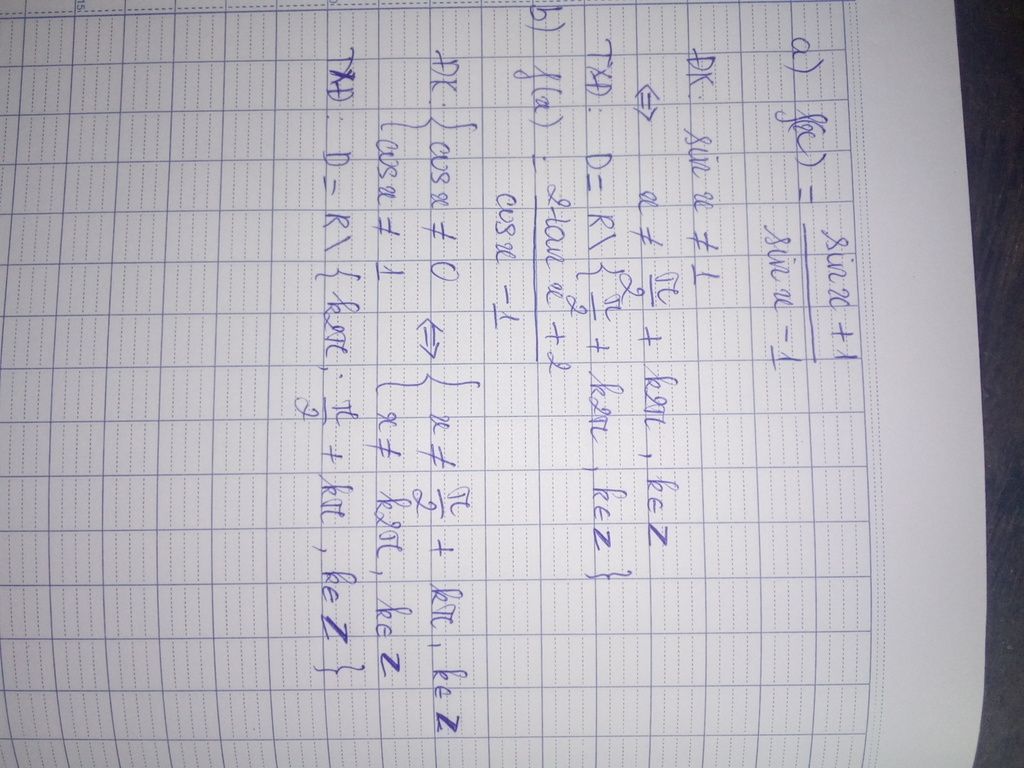 a) f(x) = \frac{sin x + 1}{sin x - 1}
ĐK: sin x ≠ 1
⇔ x ≠ \frac{π}{2} + k2π, k ∈ Z
TXĐ: D = R \ { \frac{π}{2} + k2π, k ∈ Z }
b) f(x) = \frac{2tan x + 2}{cos x - 1}
ĐK: { cos x ≠ 0 ⇔ { x ≠ \frac{π}{2} + kπ, k ∈ Z
{ cos x ≠ 1 { x ≠ k2π, k ∈ Z
TXĐ: D = R \ { k2π; \frac{π}{2} + kπ, k ∈ Z }